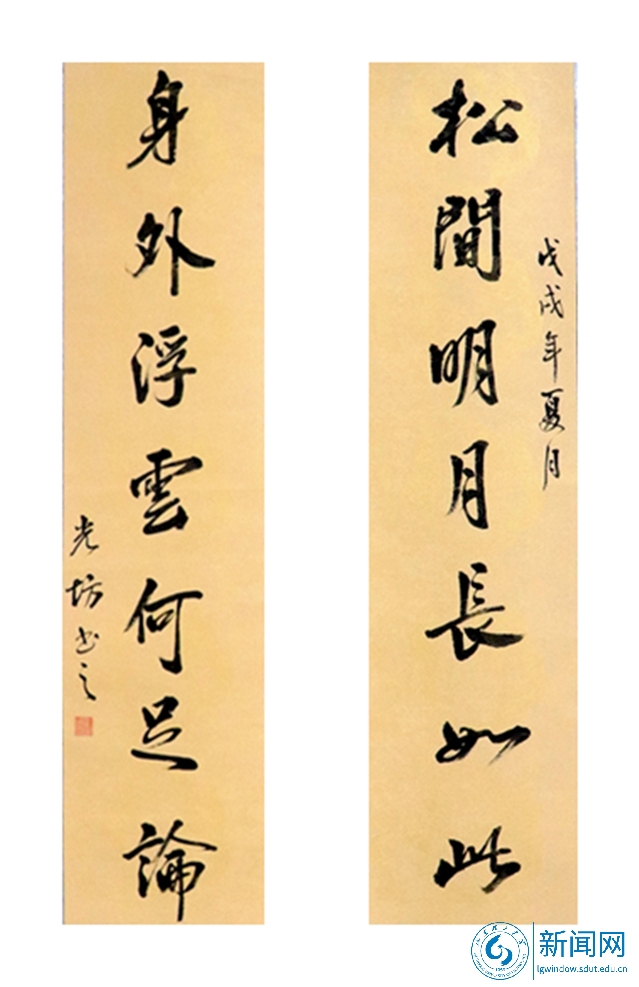 戊戌年夏月
松間明月長如此
身外浮雲何足論
光坊书之
新闻网
lgwindow.sdut.edu.cn